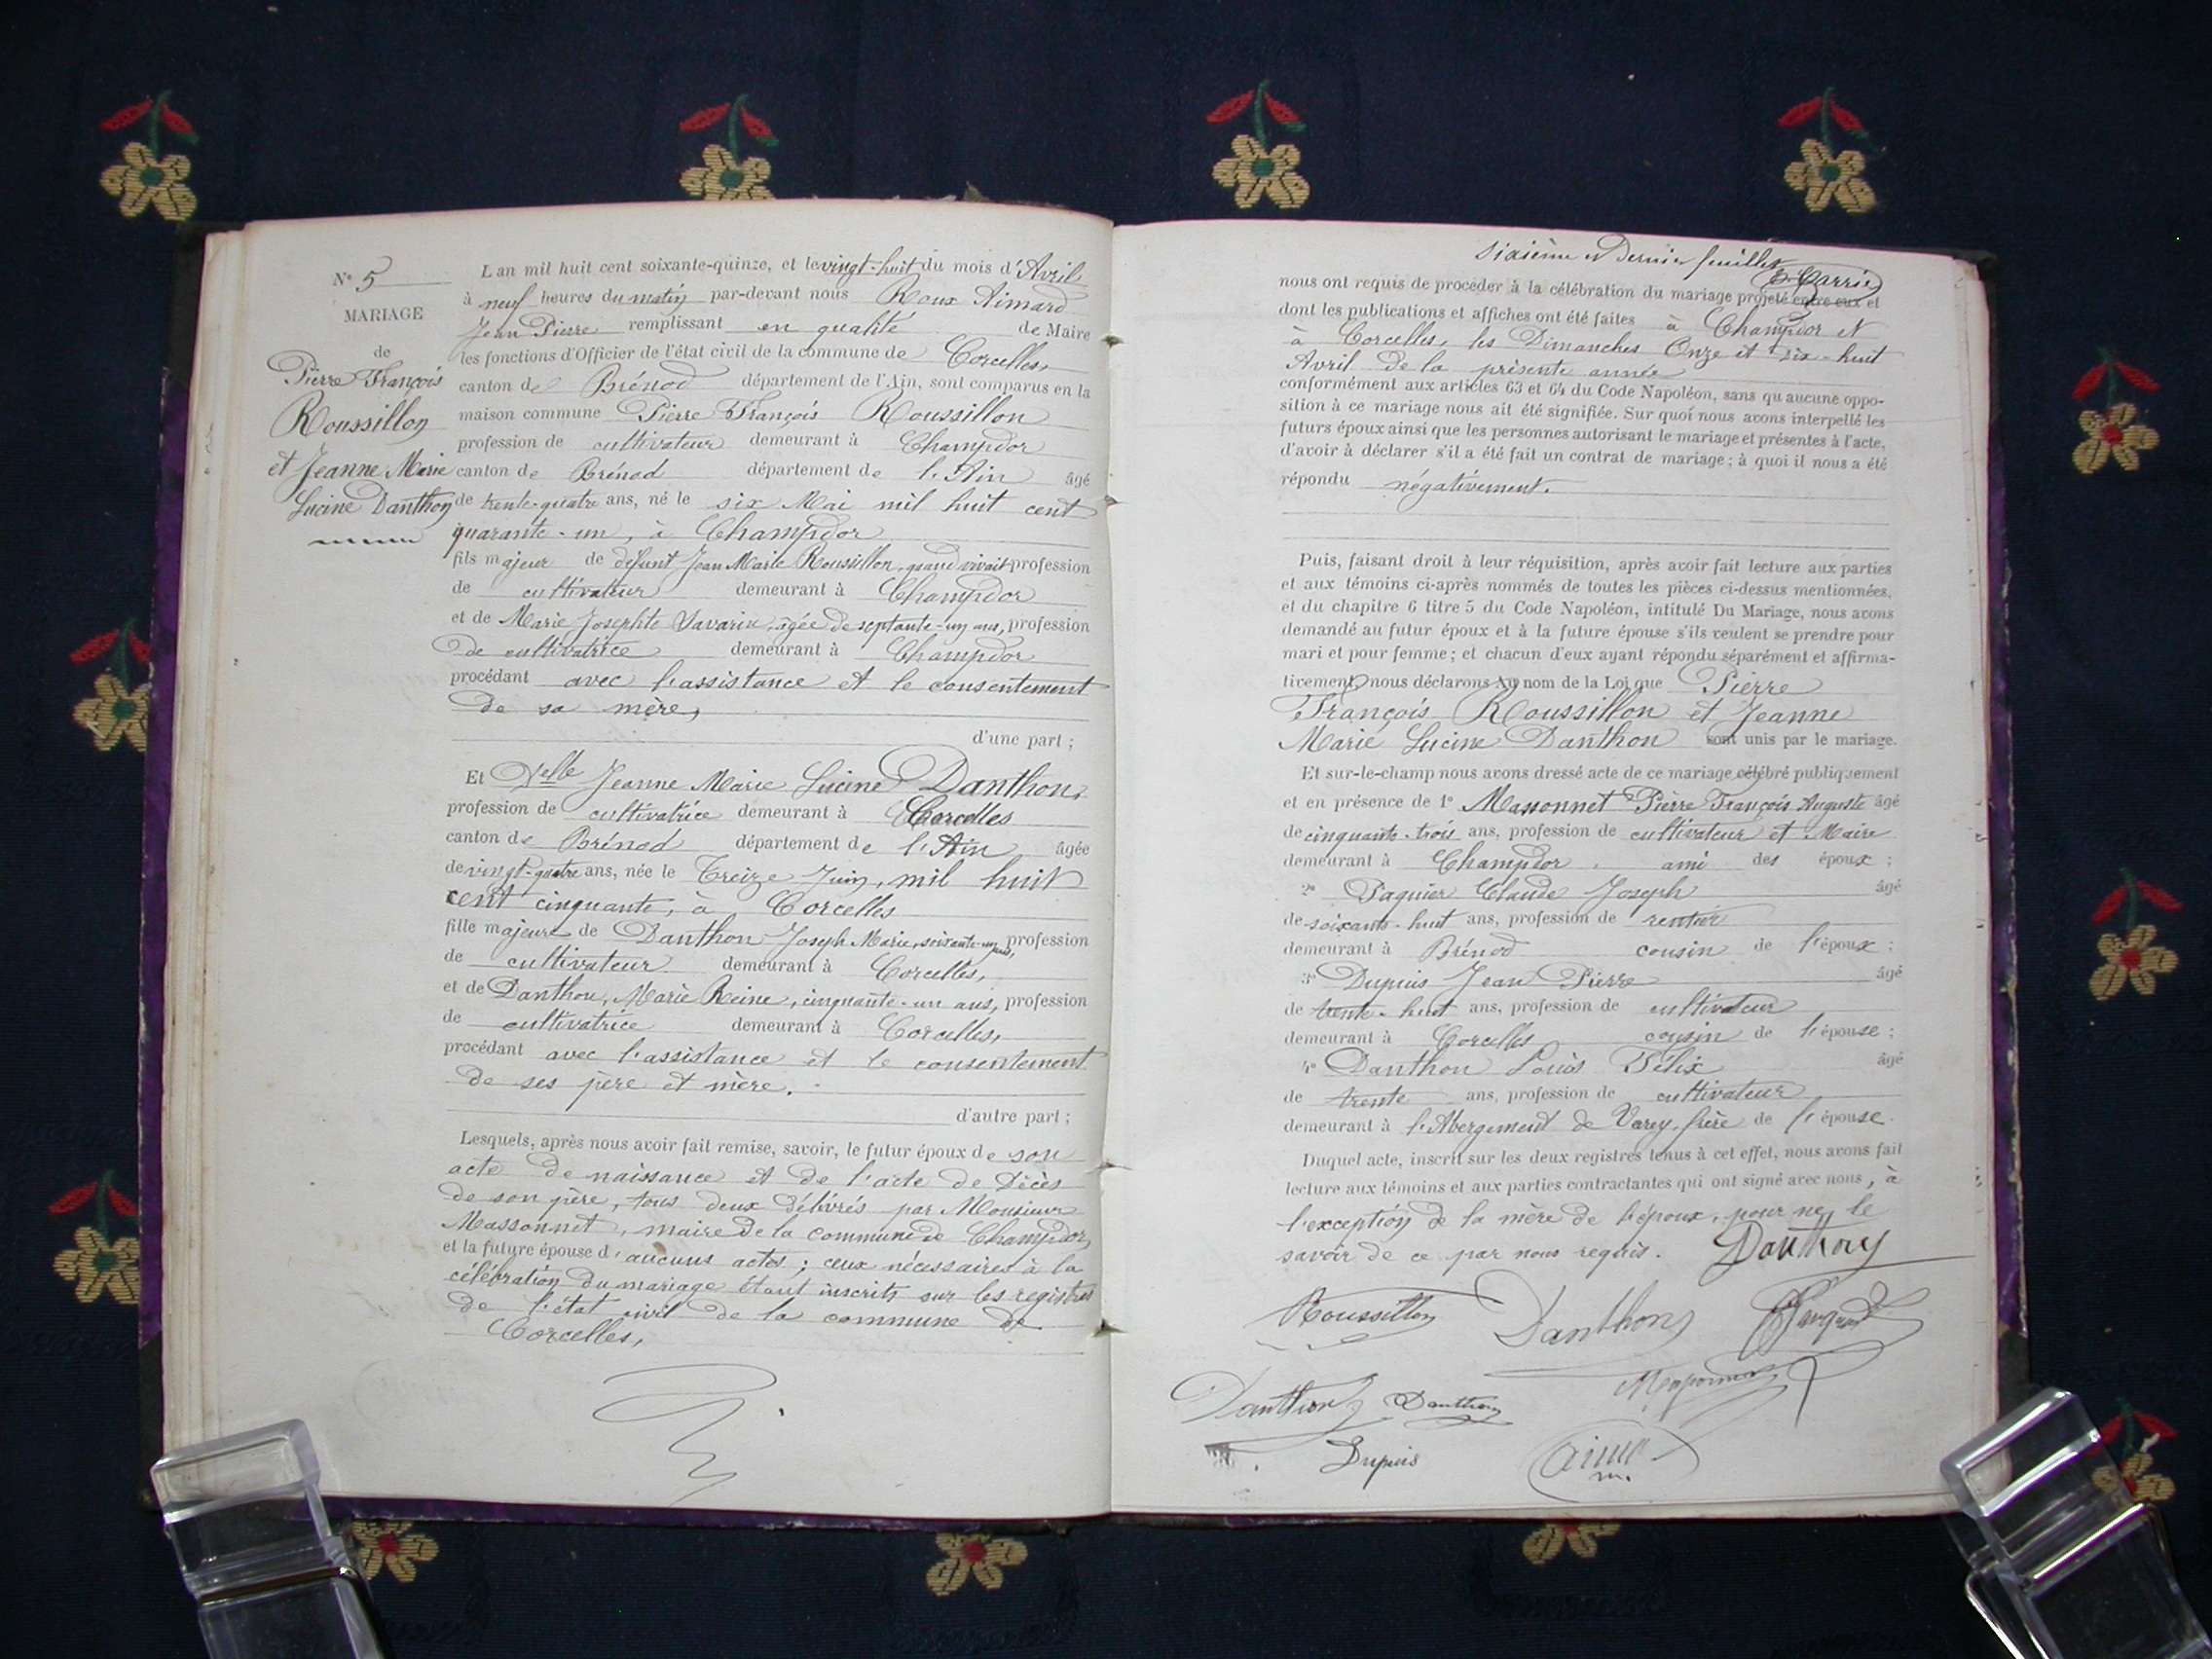 N° 5
MARIAGE
de
Pierre François
Roussillon
et Jeanne Marie
Lucine Danthon
L'an mil huit cent soixante-quinze, et le vingt-huit du mois d'Avril
à neuf heures du matin par-devant nous Roux Aimard
Jean Pierre remplissant en qualité de Maire
les fonctions d'Officier de l'état civil de la commune de Corcelles,
canton de Brénod département de l'Ain, sont comparus en la
maison commune Pierre François Roussillon
profession de cultivateur demeurant à Champdor
canton de Brénod département de l'Ain âgé
de trente-quatre ans, né le six Mai mil huit cent
quarante-un, à Champdor
fils majeur de défunt Jean Marie Roussillon, quand vivait profession
de cultivateur demeurant à Champdor
et de Marie Josephte Savarin, âgée de septante-un ans, profession
de cultivatrice demeurant à Champdor
procédant avec l'assistance et le consentement
de sa mère,
d'une part ;
Et Delle Jeanne Marie Lucine Danthon,
profession de cultivatrice demeurant à Corcelles
canton de Brénod département de l'Ain âgée
de vingt-quatre ans, née le Treize Juin, mil huit
cent cinquante, à Corcelles
fille majeure de Danthon Joseph Marie, soixante-un ans, profession
de cultivateur demeurant à Corcelles,
et de Danthon, Marie Reine, cinquante-un ans, profession
de cultivatrice demeurant à Corcelles,
procédant avec l'assistance et le consentement
de ses père et mère.
d'autre part ;
Lesquels, après nous avoir fait remise, savoir, le futur époux de son
acte de naissance et de l'acte de décès
de son père, tous deux délivrés par Monsieur
Massonnet, maire de la commune de Champdor,
et la future épouse d'aucuns actes ; ceux nécessaires à la
célébration du mariage étant inscrits sur les registres
de l'état civil de la commune de
Corcelles,
sixième et dernier feuillet
nous ont requis de procéder à la célébration du mariage projeté entre eux et
dont les publications et affiches ont été faites à Champdor et
à Corcelles, les Dimanches Onze et dix-huit
Avril de la présente année
conformément aux articles 63 et 64 du Code Napoléon, sans qu'aucune oppo-
sition à ce mariage nous ait été signifiée. Sur quoi nous avons interpellé les
futurs époux ainsi que les personnes autorisant le mariage et présentes à l'acte,
d'avoir à déclarer s'il a été fait un contrat de mariage ; à quoi il nous a été
répondu négativement.
Puis, faisant droit à leur réquisition, après avoir fait lecture aux parties
et aux témoins ci-après nommés de toutes les pièces ci-dessus mentionnées,
et du chapitre 6 titre 5 du Code Napoléon, intitulé Du Mariage, nous avons
demandé au futur époux et à la future épouse s'ils veulent se prendre pour
mari et pour femme ; et chacun d'eux ayant répondu séparément et affirma-
tivement, nous déclarons Au nom de la Loi que Pierre
François Roussillon et Jeanne
Marie Lucine Danthon sont unis par le mariage.
Et sur-le-champ nous avons dressé acte de ce mariage célébré publiquement
et en présence de 1° Massonnet Pierre François Auguste âgé
de cinquante-trois ans, profession de cultivateur et Maire
demeurant à Champdor, ami des époux ;
2° Paquier Claude Joseph âgé
de soixante-huit ans, profession de rentier
demeurant à Brénod cousin de l'époux ;
3° Dupuis Jean Pierre âgé
de trente-huit ans, profession de cultivateur
demeurant à Corcelles cousin de l'épouse ;
4° Danthon Louis Félix âgé
de trente ans, profession de cultivateur
demeurant à l'Abergement de Varey, frère de l'épouse.
Duquel acte, inscrit sur les deux registres tenus à cet effet, nous avons fait
lecture aux témoins et aux parties contractantes qui ont signé avec nous, à
l'exception de la mère de l'époux, pour ne le
savoir de ce par nous requis. Danthon
Roussillon Danthon
Danthon Danthon
Dupuis